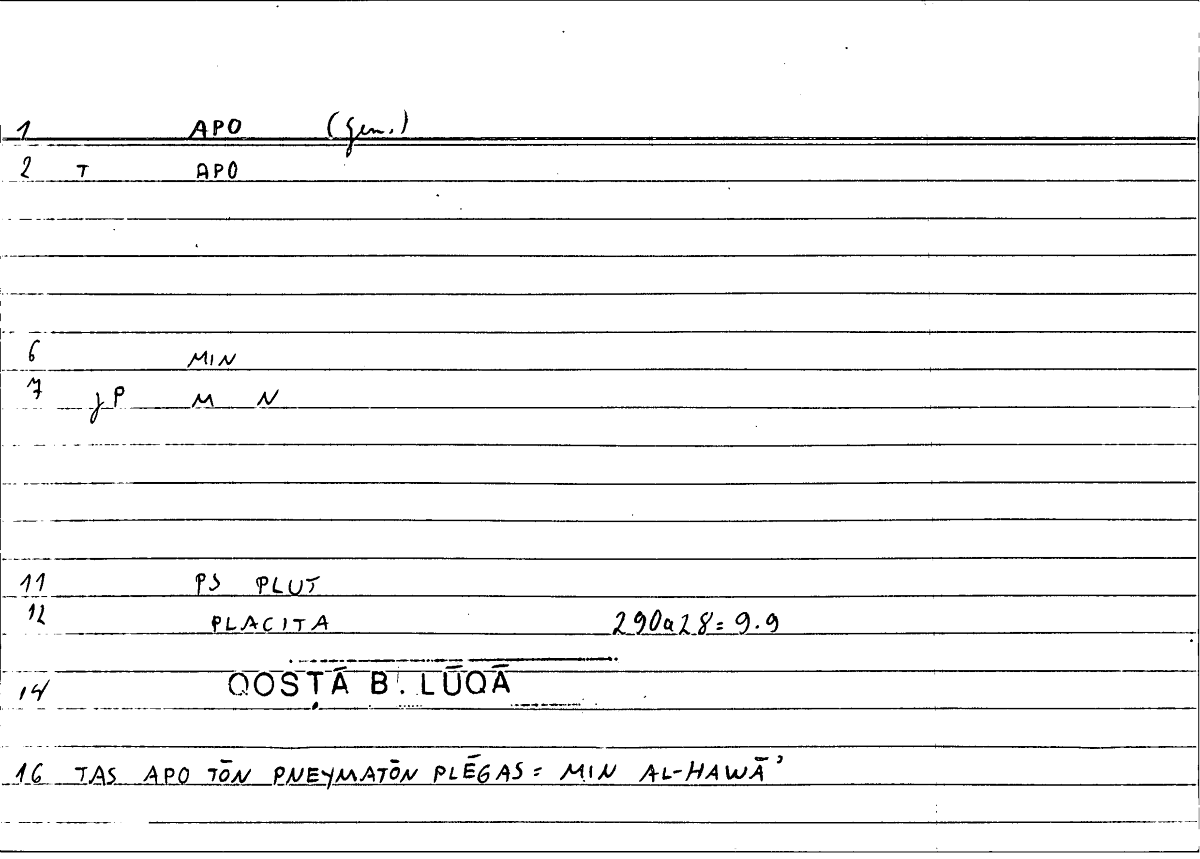 1 APO (Gen.)
2 T APO
6 MIN
7 JP M N
11 PS PLUT
12 PLACITA 290a28=9.9
14 QOSṬĀ B. LŪQĀ
16 TAS APO TŌN PNEYMATŌN PLĒGAS = MIN AL-HAWĀʾ